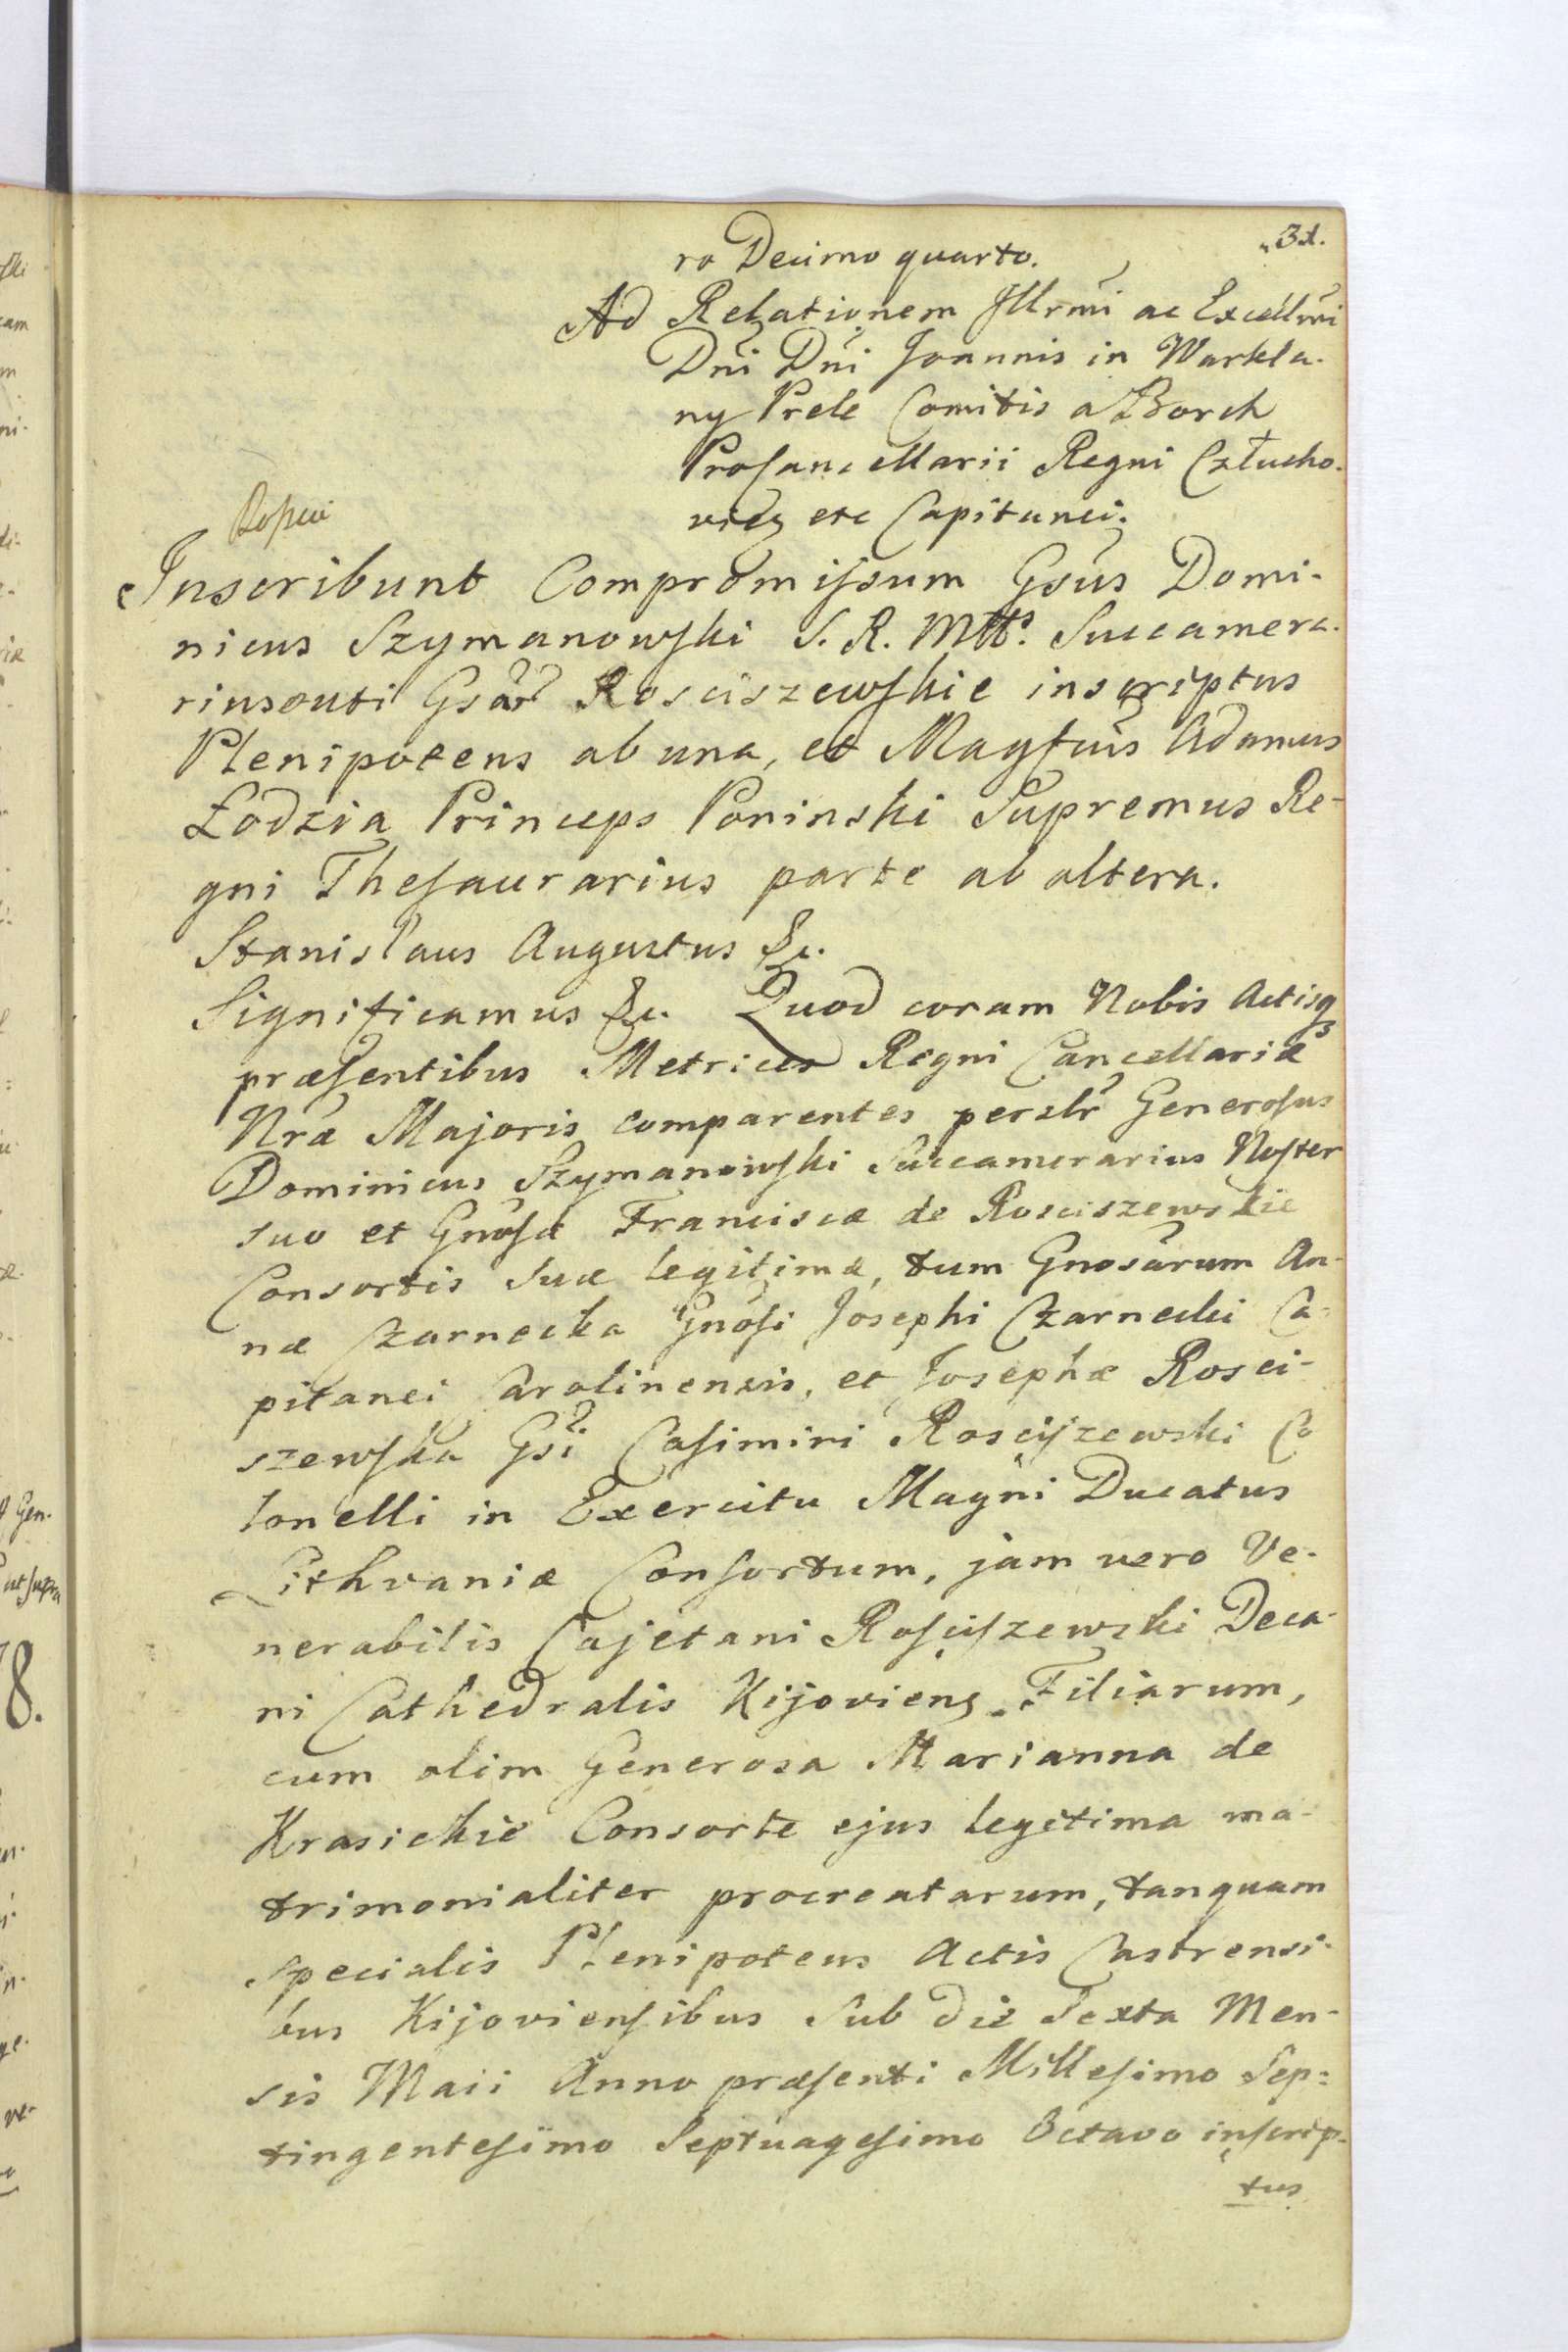 31.
ro Decimo quarto.
Ad Relationem Illrmi ac Excellmi
Dni Dni Joannis in Warkla-
ny Prele Comitis a Borch
Procancellarii Regni Człucho-
vien etc Capitanei.
Inscribunt Compromissum Gsus Domi-
nicus Szymanowski S. R. Mttis Succamera-
rius outi Gsar Rosciszewskie inscriptus
Plenipotens ab una, et Magfcus Adamus
Łodzia Princeps Poninski Supremus Re-
gni Thesaurarius parte ab altera.
Stanislaus Augustus &c.
Significamus &c. Quod coram Nobis Actisq
præsentibus Metrices Regni Cancellariæ
Nræ Majoris comparentes perslr Generosus
Dominicus Szymanowski Succamerarius Noster
suo et Gnosæ Franciscæ de Rosciszewskie
Consortis suæ legitimæ, tum Gnosarum An-
næ Czarnecka Gnosi Josephi Czarnecki Ca-
pitanei Carolinensis, et Josephæ Rosci-
szewska Gsi Casimiri Rosciszewski Co
lonelli in Exercitu Magni Ducatus
Lithvaniæ Consortum, jam vero Ve-
nerabilis Cajetani Rosciszewski Deca-
ni Cathedralis Kijoviens. Filiarum,
cum olim Generosa Marianna de
Krasickie Consorte ejus legitima ma-
trimonialiter procreatarum, tanquam
specialis Plenipotens Actis Castrensi-
bus Kijoviensibus Sub die Sexta Men-
sis Maii Anno præsenti Millesimo Sep-
tingentesimo Septuagesimo Octavo inscrip-
tus